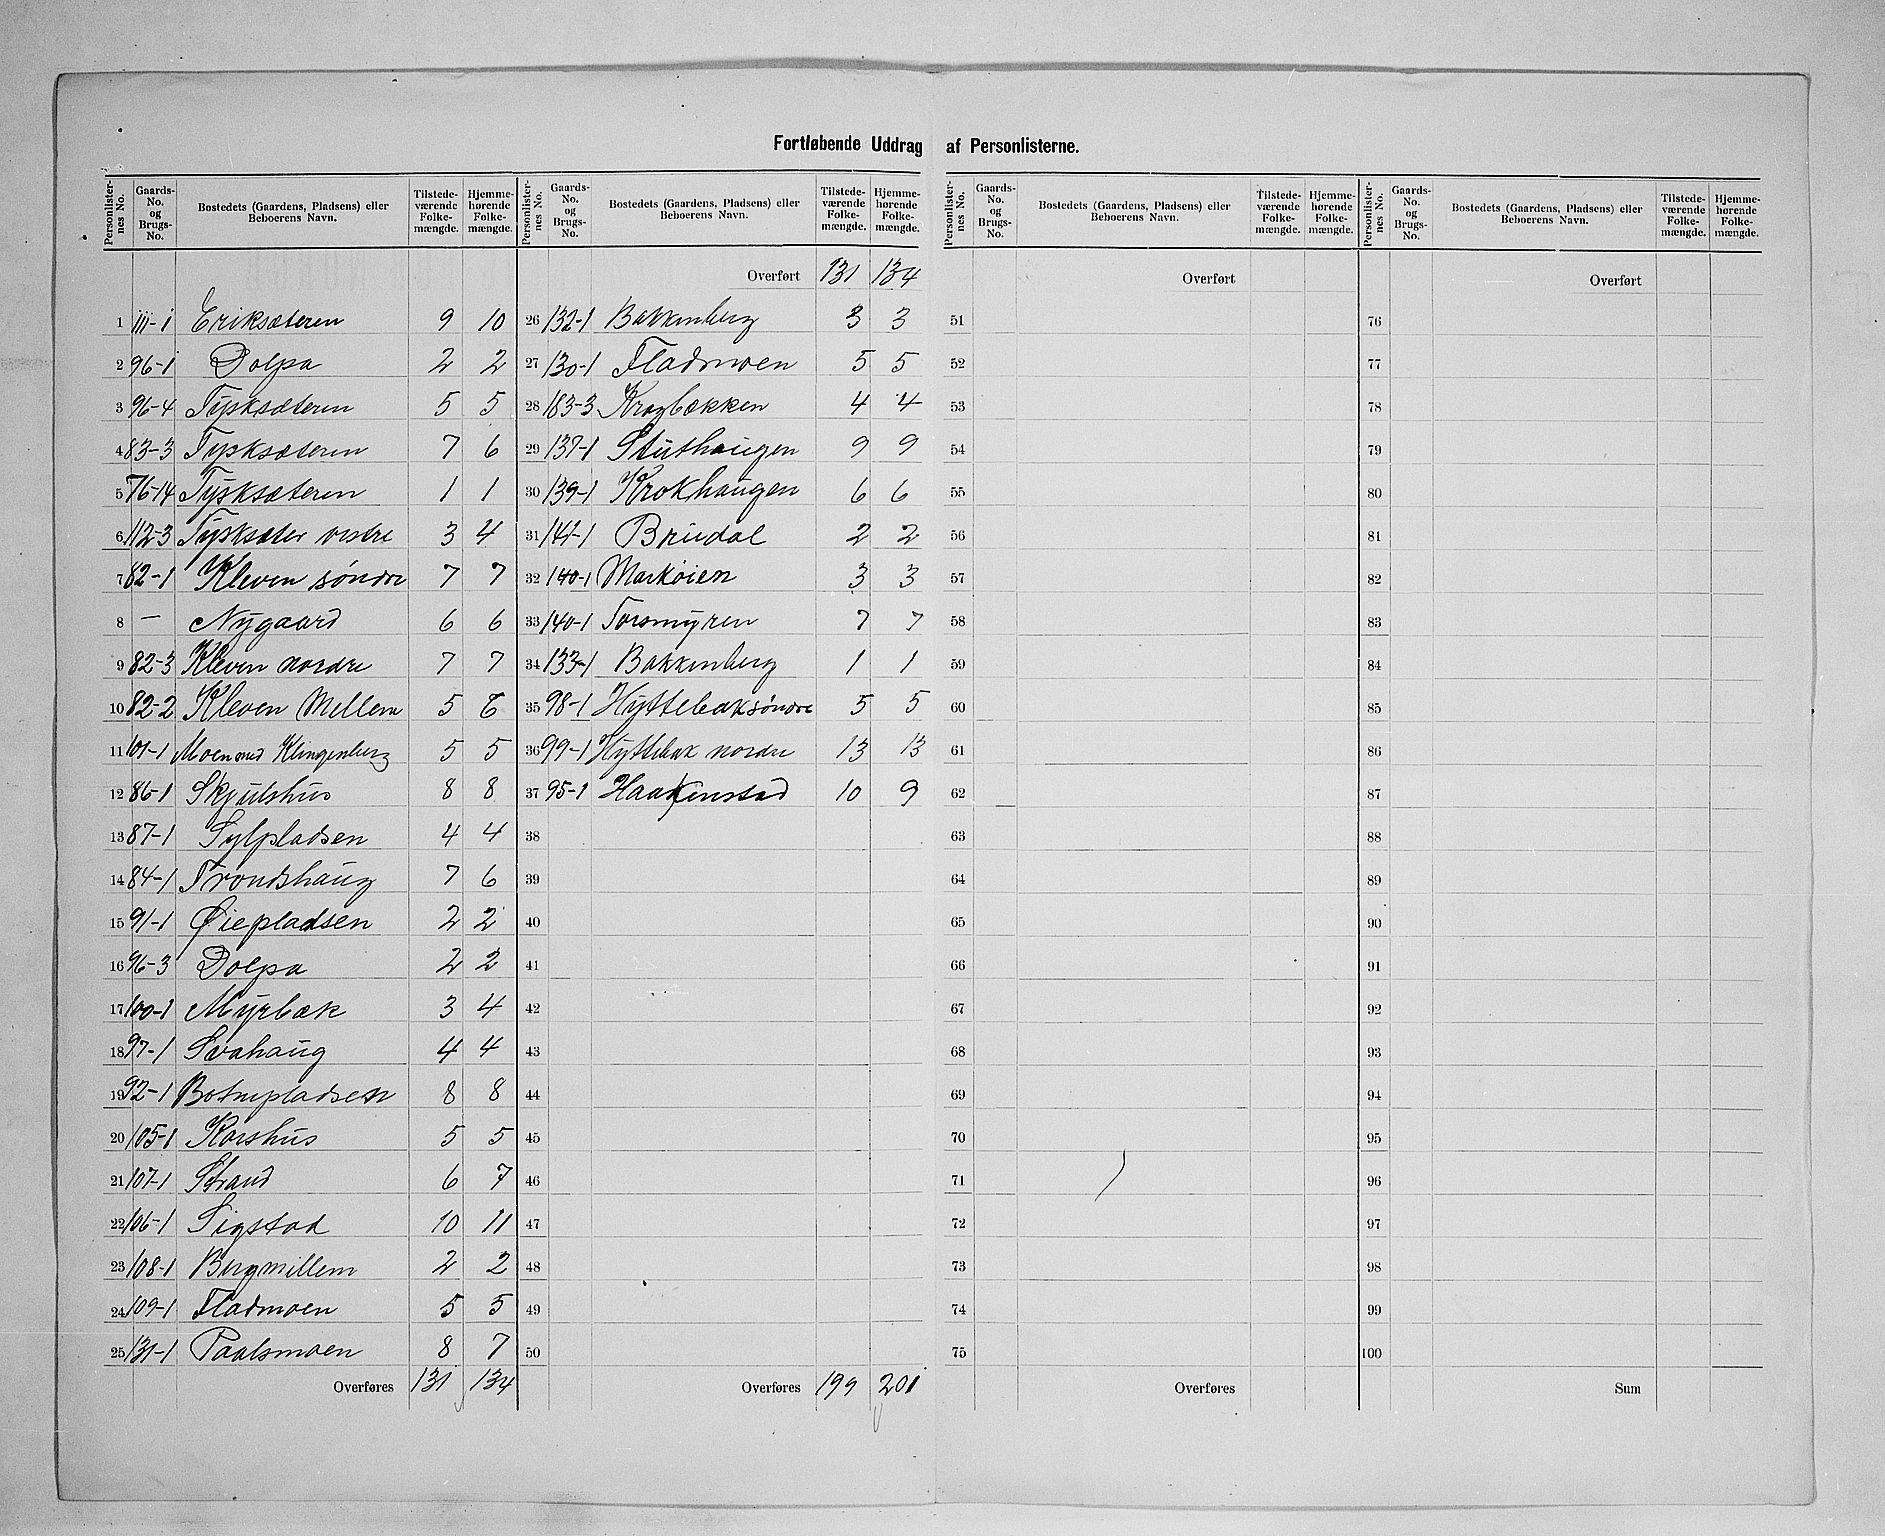 Fortløbende Uddrag af Personlisterne.
Personlister-nes No. Gaards-No. og Brugs-No. Bostedets (Gaardens, Pladsens) eller Beboerens Navn. Tilstede-værende Folke-mængde. Hjemme-hørende Folke-mængde.
1 111-1 Eriksæteren 9 10
2 96-1 Dolpa 2 2
3 96-4 Tysksæteren 5 5
4 83-3 Tysksæteren 7 6
5 76-14 Tysksæteren 1 1
6 112-3 Tysksæter vestre 3 4
7 82-1 Kleven søndre 7 7
8 — Nygaard 6 6
9 82-3 Kleven nordre 7 7
10 82-2 Kleven Mellem 5 6
11 101-1 Moen med Klingenberg 5 5
12 86-1 Skjulshus 8 8
13 87-1 Sylpladsen 4 4
14 84-1 Trondshaug 7 6
15 91-1 Øiepladsen 2 2
16 96-3 Dolpa 2 2
17 100-1 Myrbæk 3 4
18 97-1 Svahaug 4 4
19 92-1 Botnpladsen 8 8
20 105-1 Korshus 5 5
21 107-1 Strand 6 7
22 106-1 Sigstad 10 11
23 108-1 Bergmillem 2 2
24 109-1 Fladmoen 5 5
25 131-1 Paalsmoen 8 7
Overføres 131 134
Personlister-nes No. Gaards-No. og Brugs-No. Bostedets (Gaardens, Pladsens) eller Beboerens Navn. Tilstede-værende Folke-mængde. Hjemme-hørende Folke-mængde.
Overført 131 134
26 132-1 Bakkenberg 3 3
27 130-1 Fladmoen 5 5
28 183-3 Krogbækken 4 4
29 137-1 Stuthaugen 9 9
30 139-1 Krokhaugen 6 6
31 141-1 Brudal 2 2
32 140-1 Markøien 3 3
33 140-1 Torsmyren 7 7
34 133-1 Bakkenberg 1 1
35 98-1 Hyttebak søndre 5 5
36 99-1 Hyttebak nordre 13 13
37 95-1 Haakenstad 10 9
38
39
40
41
42
43
44
45
46
47
48
49
50
Overføres 199 201
Personlister-nes No. Gaards-No. og Brugs-No. Bostedets (Gaardens, Pladsens) eller Beboerens Navn. Tilstede-værende Folke-mængde. Hjemme-hørende Folke-mængde.
Overført
51
52
53
54
55
56
57
58
59
60
61
62
63
64
65
66
67
68
69
70
71
72
73
74
75
Overføres
Personlister-nes No. Gaards-No. og Brugs-No. Bostedets (Gaardens, Pladsens) eller Beboerens Navn. Tilstede-værende Folke-mængde. Hjemme-hørende Folke-mængde.
Overført
76
77
78
79
80
81
82
83
84
85
86
87
88
89
90
91
92
93
94
95
96
97
98
99
100
Sum